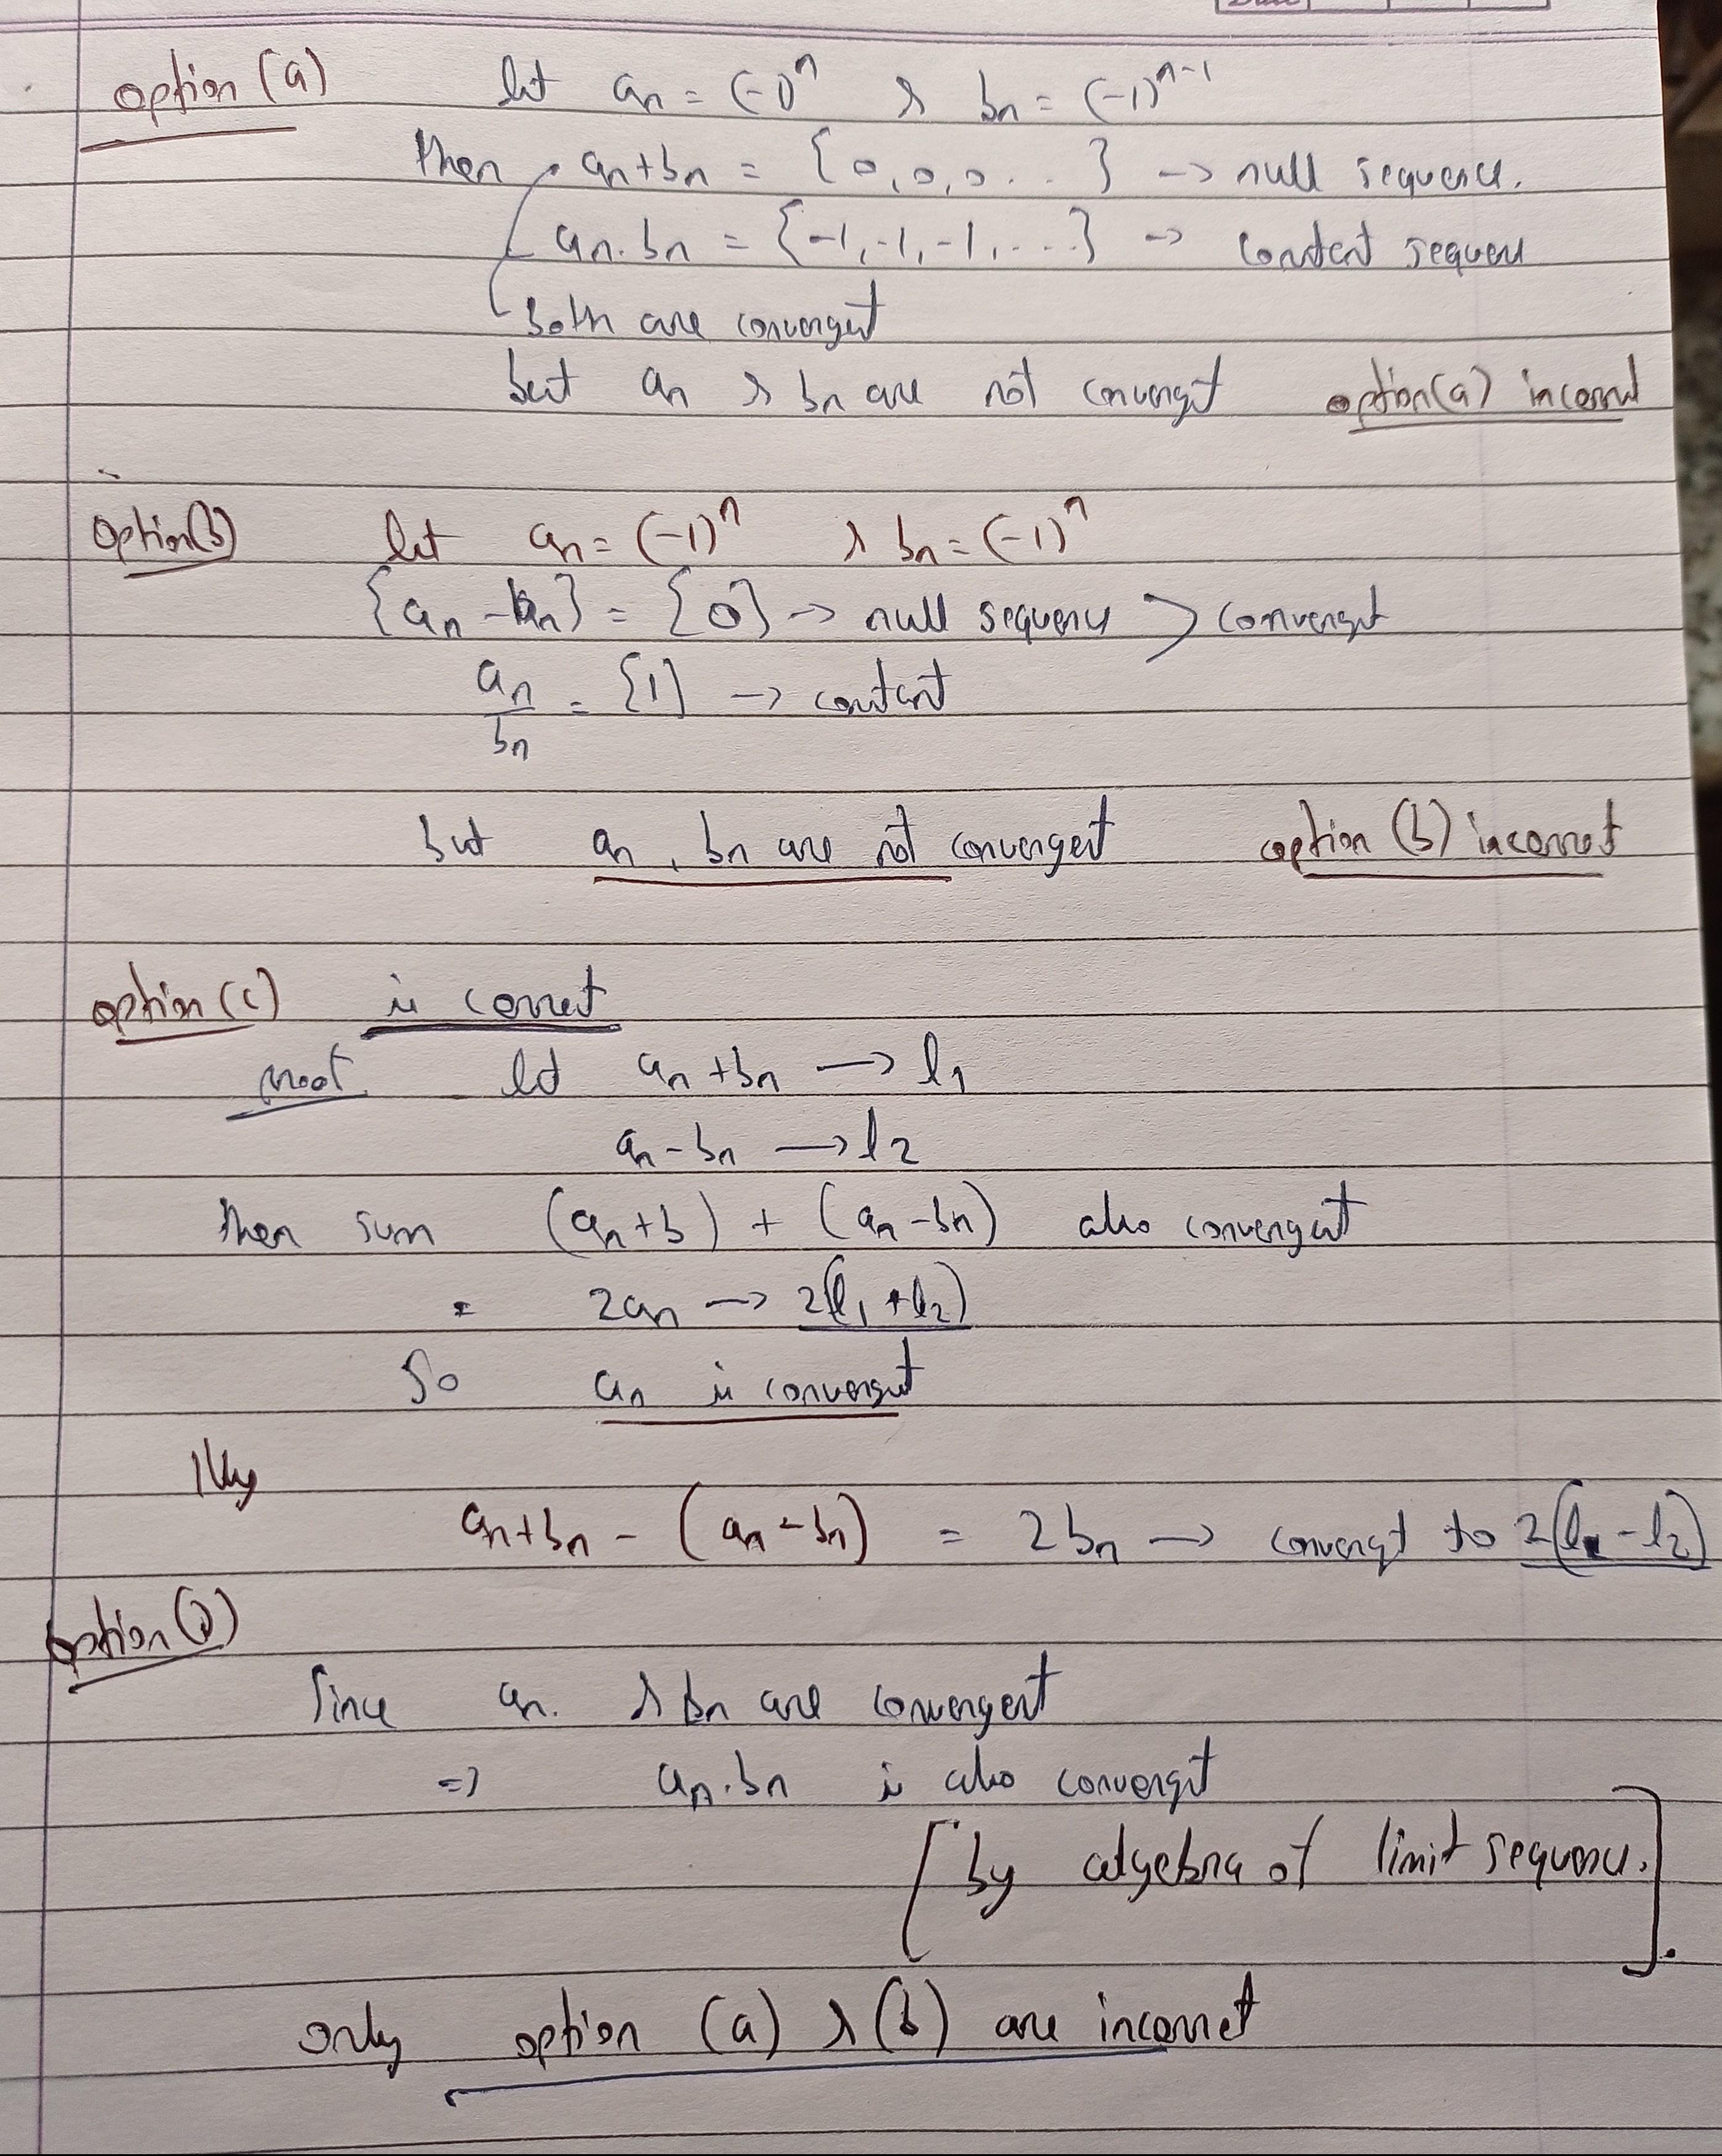 option (a) let an = (-1)^n & bn = (-1)^n-1
then an+bn = {0,0,0...} -> null sequence.
an.bn = {-1,-1,-1,...} -> constent sequen
both are convergent
but an & bn are not convergt option(a) incorrect
Option(b) let an = (-1)^n & bn = (-1)^n
{an - bn} = {0} -> null sequence > convergent
an/bn = {1} -> constant
but an, bn are not convergent option (b) incorrect
option (c) is correct
proof let an + bn -> l1
an - bn -> l2
then sum (an + b) + (an - bn) also convergent
= 2an -> 2(l1 + l2)
So an is convergent
lly
an+bn - (an - bn) = 2bn -> convergt to 2(l1 - l2)
option (d)
Since an. & bn are convergent
=> an.bn is also convergent
[by algebra of limit sequence.].
only option (a) & (b) are incorrect